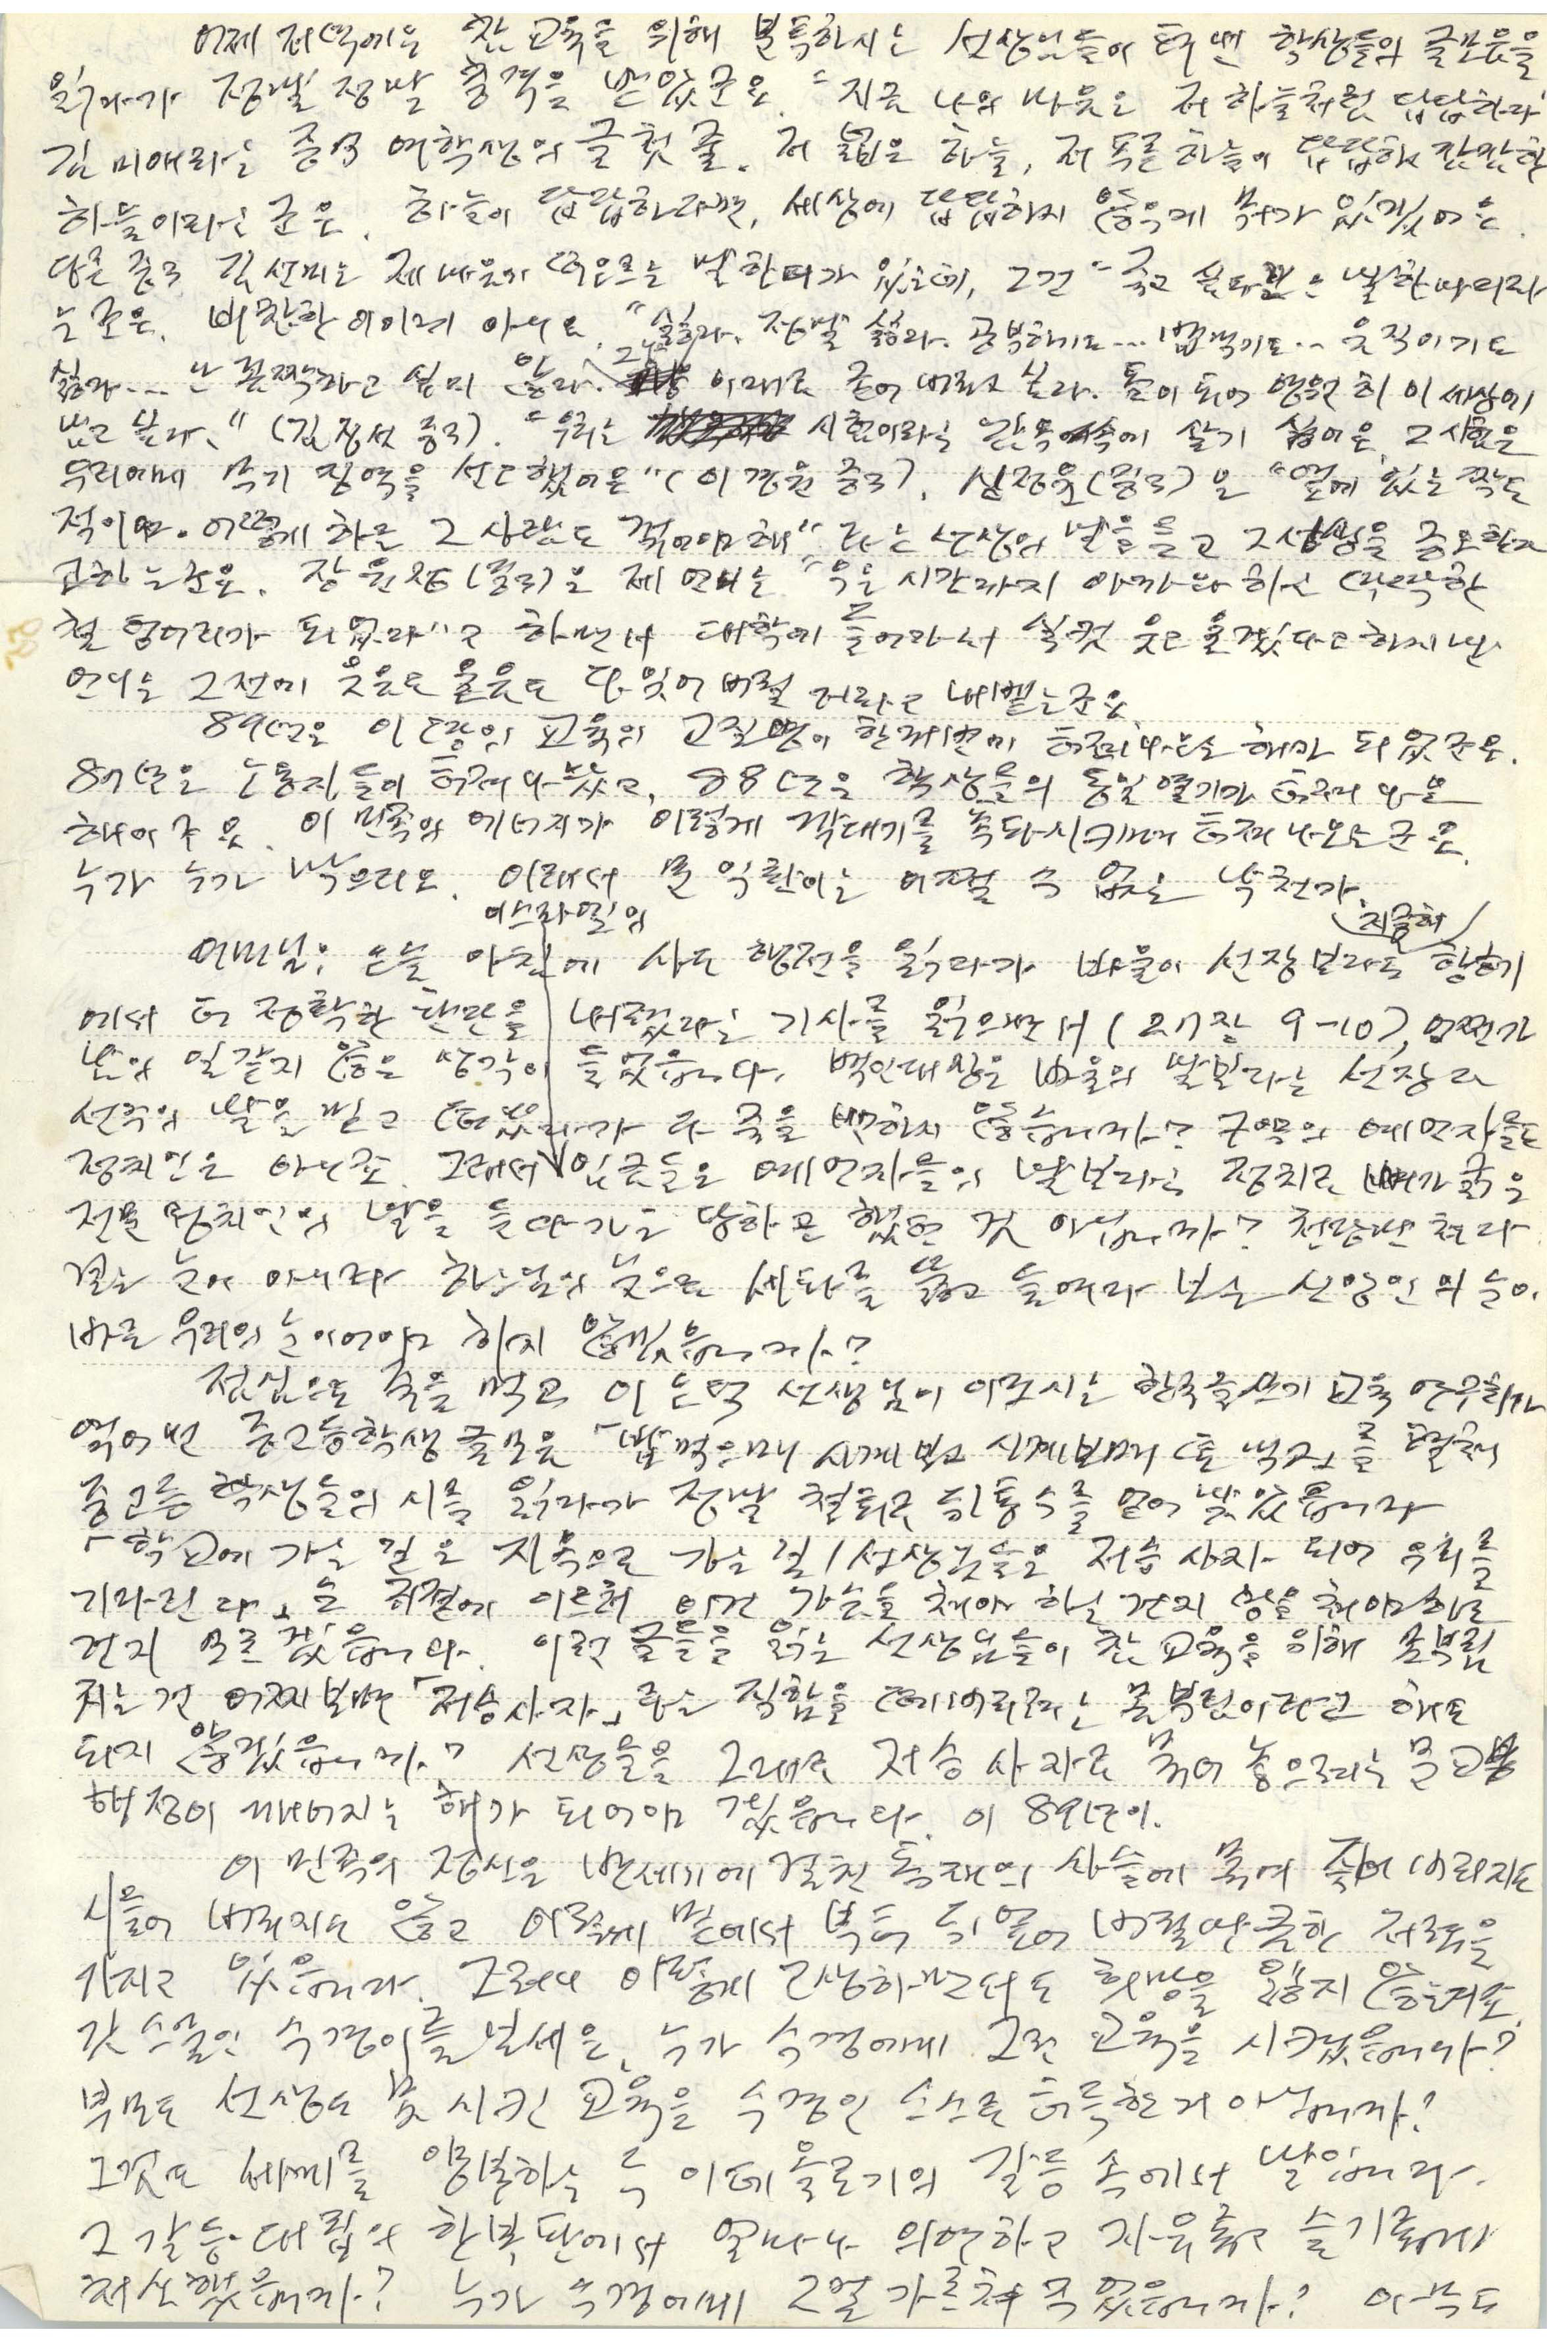 어제 저녁에는 참 교육을 위해 분투하시는 선생님들이 펴낸 학생들의 글모음을
읽다가 정말 정말 충격을 받았군요. "지금 나의 마음은 저 하늘처럼 답답하다"
김미애라는 중3 여학생의 글 첫 줄. 저 넓은 하늘, 저 푸른 하늘이 답답하고 깜깜한
하늘이라는군요. 하늘이 답답하다면, 세상에 답답하지 않을게 뭐가 있겠어요.
다른 중3 김선미는 제 마음에 떠오르는 말 한마디가 있는데, 그건 "죽고 싶다"라는 말 한마디라
는군요. 비참한 이야기 아니오. "싫다. 정말 싫다. 공부하기도… 밥먹기도… 움직이기도
싫다… 난 꼼짝하고 싶지 않다. 그냥 이대로 죽어 버리고 싶다. 돌이 되어 영원히 이 세상에
남고 싶다." (김정서 중3). "우리는 시험이라는 감옥 속에 살기 싫어요. 그 시험은
우리에게 무기징역을 선고했어요" (이경원 중3). 심정윤(중3)은 "옆에 있는 짝도
적이다. 어떻게 하든 그 사람도 꺾어야 해"라는 선생의 말을 듣고 그 선생을 증오한다
고 하는군요. 장윤정(중3)은 제 언니는 "웃을 시간까지 아까와 하는 딱딱한
철 덩어리가 되었다"고 하면서 대학에 들어가서 실컷 웃고 울겠다고 하지만
언니는 그 전에 웃음도 울음도 다 잊어버릴 거라고 내뱉는군요.
89년은 이 땅의 교육의 고질병이 한꺼번에 터져나오는 해가 되었군요.
87년은 노동자들이 터져 나왔고, 88년은 학생들의 통일 열기가 터져 나온
해이군요. 이 민족의 에너지가 이렇게 릭대기를 폭파시키며 터져 나오는군요.
누가 누가 막으리오. 이래서 문익환이는 어쩔 수 없는 낙천가.
어머님: 오늘 아침에 사도행전을 읽다가 바울이 선장보다도 지중해 항해
에서 더 정확한 판단을 내렸다는 기사를 읽으면서 (27장 9-10), 어쩐지
남의 일 같지 않은 생각이 들었습니다. 백인대장은 바울의 말보다는 선장과
선주의 말을 믿고 떠났다가 다 죽을 뻔하지 않습니까? 구약의 예언자들도
정치인은 아니죠. 그래서 이스라엘의 임금들은 예언자들의 말보다는 정치로 뼈가 굵은
전문 정치인의 말을 듣다가는 망하곤 했던 것 아닙니까? 천랑변
눈이 아니라 하느님의 눈으로 사태를 뚫고 들여다 보는 신앙인의 눈이
바로 우리의 눈이어야 하지 않겠습니까?
점심으로 죽을 먹고 이오덕 선생님이 이끄시는 한국글쓰기 교육 연구회가
엮어낸 중고등학생 글모음 「밥 먹으며 시계보고 시계보며 또 먹고」를 펼쳐
중고등학생들의 시를 읽다가 정말 철퇴로 뒤통수를 얻어 맞았습니다.
「학교에 가는 길은 지옥으로 가는 길 / 선생님들은 저승사자 되어 우리를
기다린다」는 구절에 이르러 이건 가슴을 쳐야 하는 건지 상을 쳐야 하는
건지 모르겠습니다. 이런 글들을 읽는 선생님들이 참 교육을 위해 몸부림
치는 건 어찌보면 「저승사자」라는 직함을 떼어버리려는 몸부림이라고 해도
되지 않겠습니까? 선생들을 그대로 저승사자로 묶어 놓으려는 문교부
행정이 깨어지는 해가 되어야 겠습니다. 이 89년이.
이 민족의 정신은 반세기에 걸친 독재의 사슬에 묶여 죽어 버리지도
시들어 버리지도 않고 이렇게 밑에서 부터 뒤엎어 버릴만큼한 저력을
가지고 있습니다. 그러나 이렇게 고생하면서도 희망을 잃지 않는 거죠.
갓 스물인 수경이를 보세요. 누가 수경에게 그런 교육을 시켰습니까?
부모도 선생도 못 시킨 교육을 수경인 스스로 터득한 거 아닙니까?
그것도 세계를 양분하는 두 이데올로기의 갈등 속에서 말입니다.
그 갈등·대립의 한복판에서 얼마나 의연하고 자유롭고 슬기롭게
처신했습니까? 누가 수경에게 그걸 가르쳐 주었습니까? 아무도